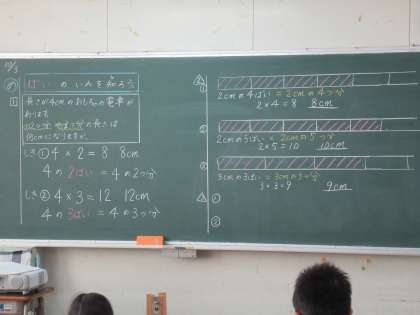 12/3
め ばいのいみを知ろう
1 長さが4cmのおもちゃの電車が
あります。
2つ分 3つ分の長さは
何cmになりますか。
しき① 4×2=8 8cm
4の2ばい=4の2つ分
しき② 4×3=12 12cm
4の3ばい=4の3つ分
①
2cmの4ばい=2cmの4つ分
2×4=8 8cm
②
2cmの5ばい=2cmの5つ分
2×5=10 10cm
③
3cmの3ばい=3cmの3つ分
3×3=9 9cm
①
②